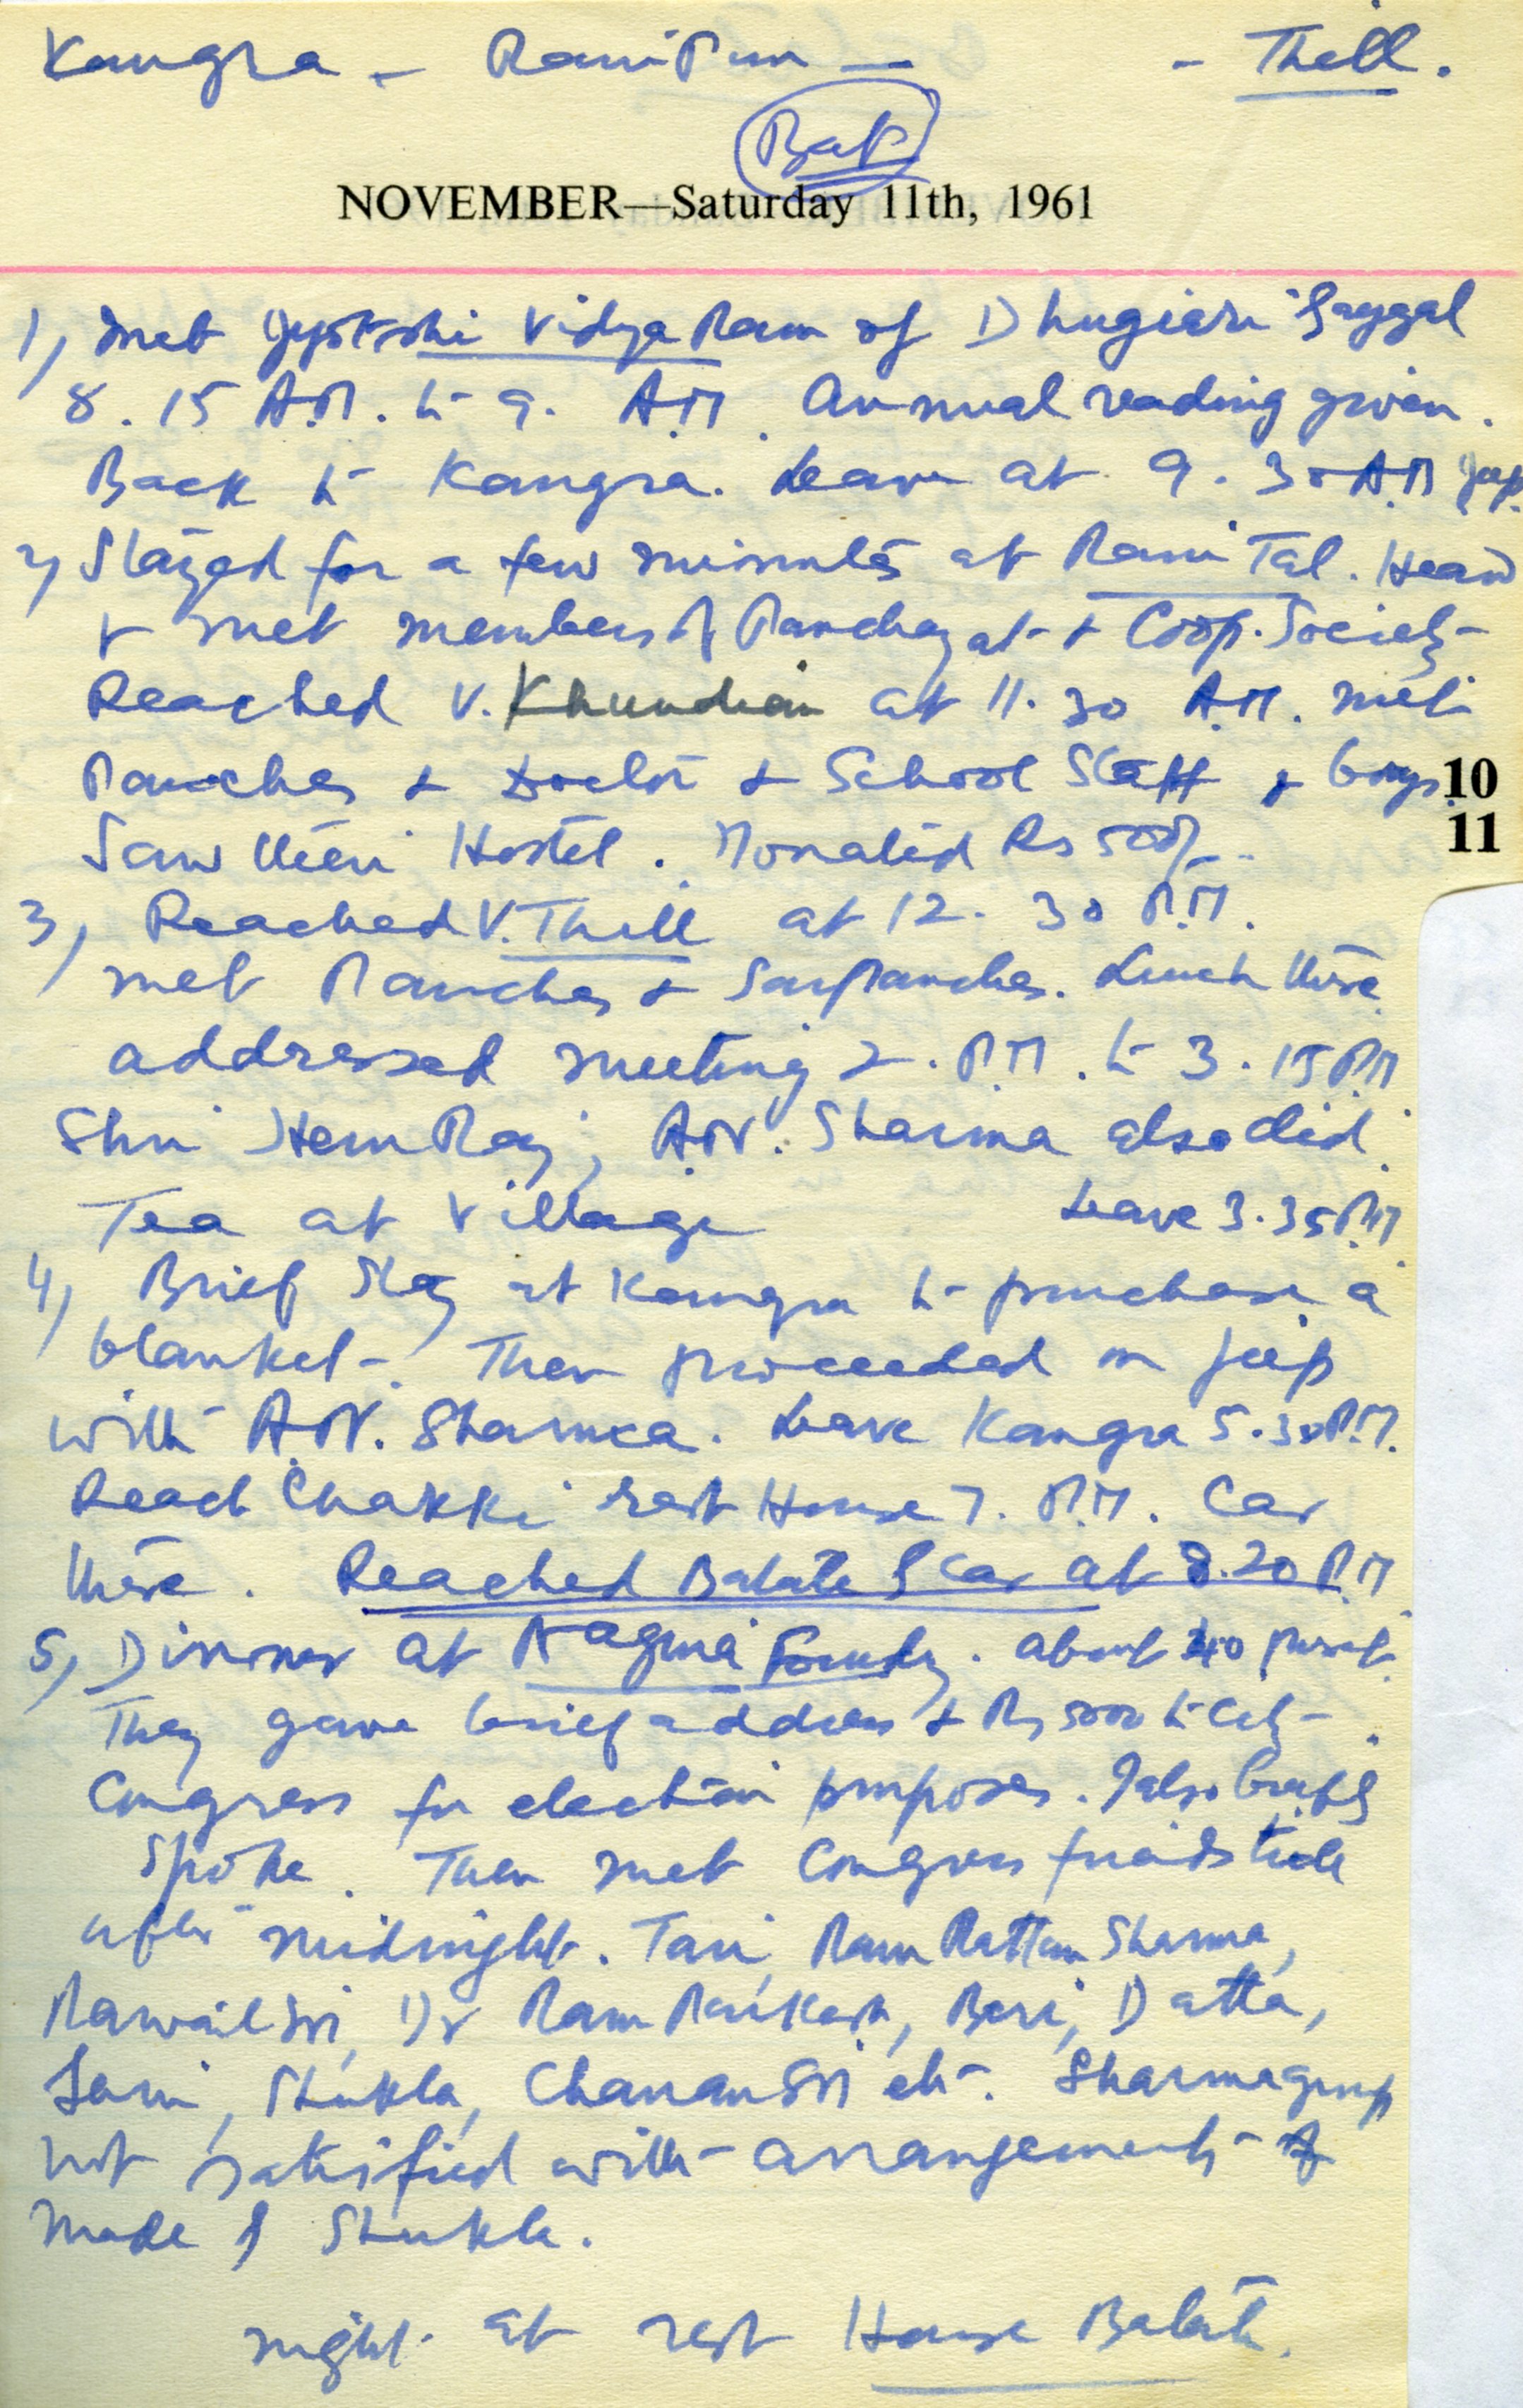 Kangra - Ranital - - Thill.
NOVEMBER—Saturday 11th, 1961
1) Met Jyotshi Vidya Ram of Dhugiari Saggal
8.15 A.M. to 9. A.M. Annual reading given.
Back to Kangra. Leave at 9.30 A.M Jeep.
2) Stayed for a few minutes at Rani Tal. Heard
& met members of Panchayat & Coop. Society
Reached V. Khundian at 11.30 A.M. met
Panches & Doctor & School Staff & boys
10
Saw their Hostel. Donated Rs 500/-
11
3) Reached V. Thill at 12.30 P.M.
met Panches & Sarpanches. Lunch there
addressed meeting 2. P.M. to 3.15 P.M
Shri Hem Raj, A.N. Sharma also did.
Tea at Village Leave 3.35 P.M
4) Brief Stay at Kangra to purchase a
blanket. Then proceeded in Jeep
with A.N. Sharma. Leave Kangra 5.30 P.M.
Reach Chakki rest House 7. P.M. Car
there. Reached Batala by Car at 8.20 P.M
5) Dinner at Nagina Foundry. about 40 present.
They gave brief address & Rs 5000 to City
Congress for election purposes. I also briefly
spoke. Then met Congress friends till
after midnight. Tari, Ram Rattan Sharma,
Rawail Sn, Dr Ram Parkash, Beri, Datta,
Shukla, Chanan Sn etc. Sharma group
not satisfied with arrangements
made by Shukla.
night at rest House Batala.